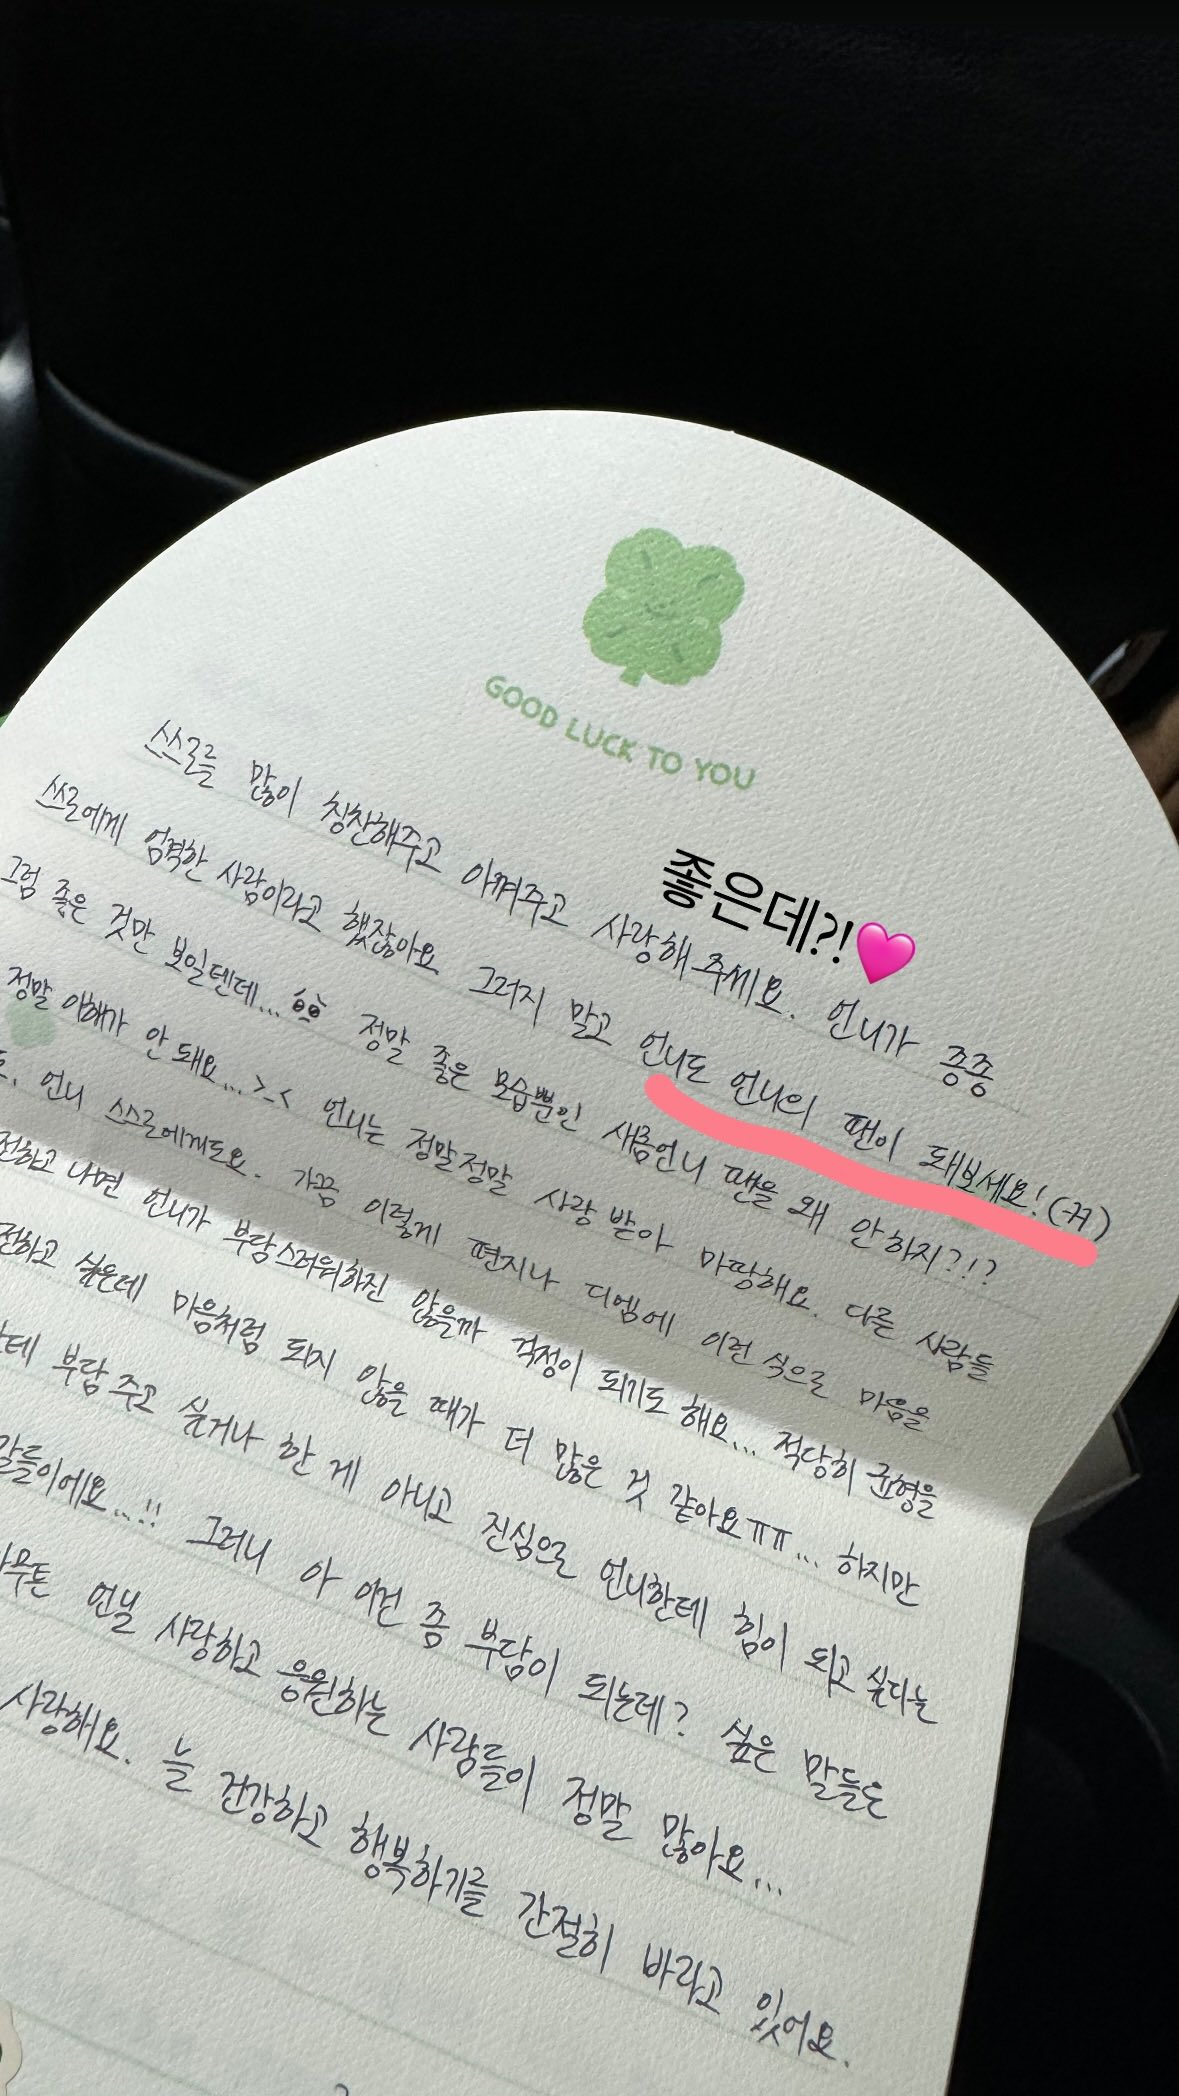 GOOD LUCK TO YOU
좋은데?!🩷
스스로를 많이 칭찬해주고 아껴주고 사랑해 주세요. 언니가 종종
스스로에게 엄격한 사람이라고 했잖아요 그러지 말고 언니도 언니의 팬이 돼보세요! (ㄲ)
그럼 좋은 것만 보일텐데... 정말 좋은 모습뿐인 새봄언니 팬을 왜 안하지?!?
정말 이해가 안 돼요...>_< 언니는 정말정말 사랑 받아 마땅해요. 다른 사람들
언니 스스로에게도요. 가끔 이렇게 편지나 디엠에 이런 식으로 마음을
전하고 나면 언니가 부담스러워하진 않을까 걱정이 되기도 해요... 적당히 균형을
전하고 싶은데 마음처럼 되지 않을 때가 더 많은 것 같아요ㅠㅠ... 하지만
부담 주고 싶거나 한 게 아니고 진심으로 언니한테 힘이 되고 싶다는
말들이에요...!! 그러니 아 이건 좀 부담이 되는데? 싶은 말들은
언닐 사랑하고 응원하는 사람들이 정말 많아요...
사랑해요. 늘 건강하고 행복하기를 간절히 바라고 있어요.